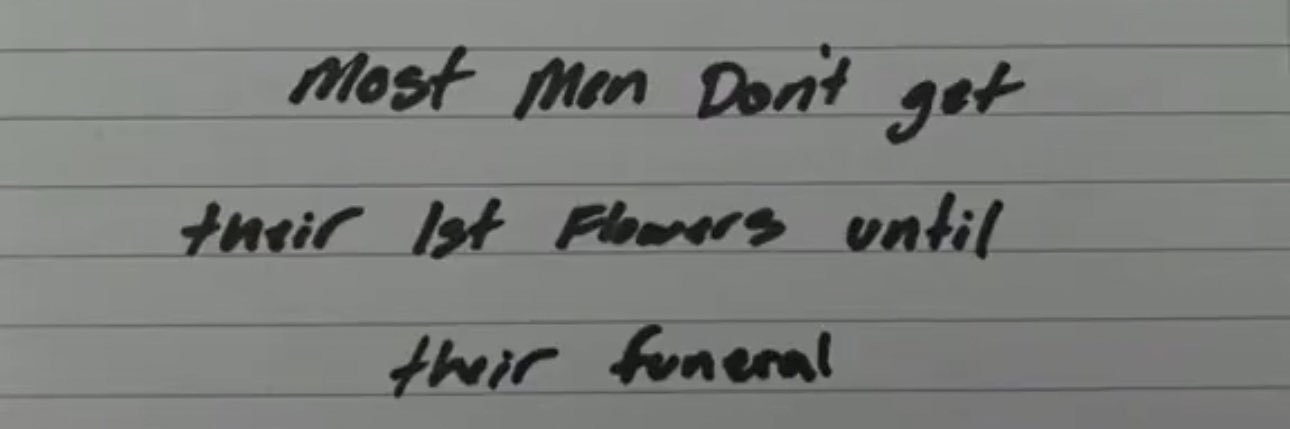 Most Men Don't get
their 1st Flowers until
their funeral